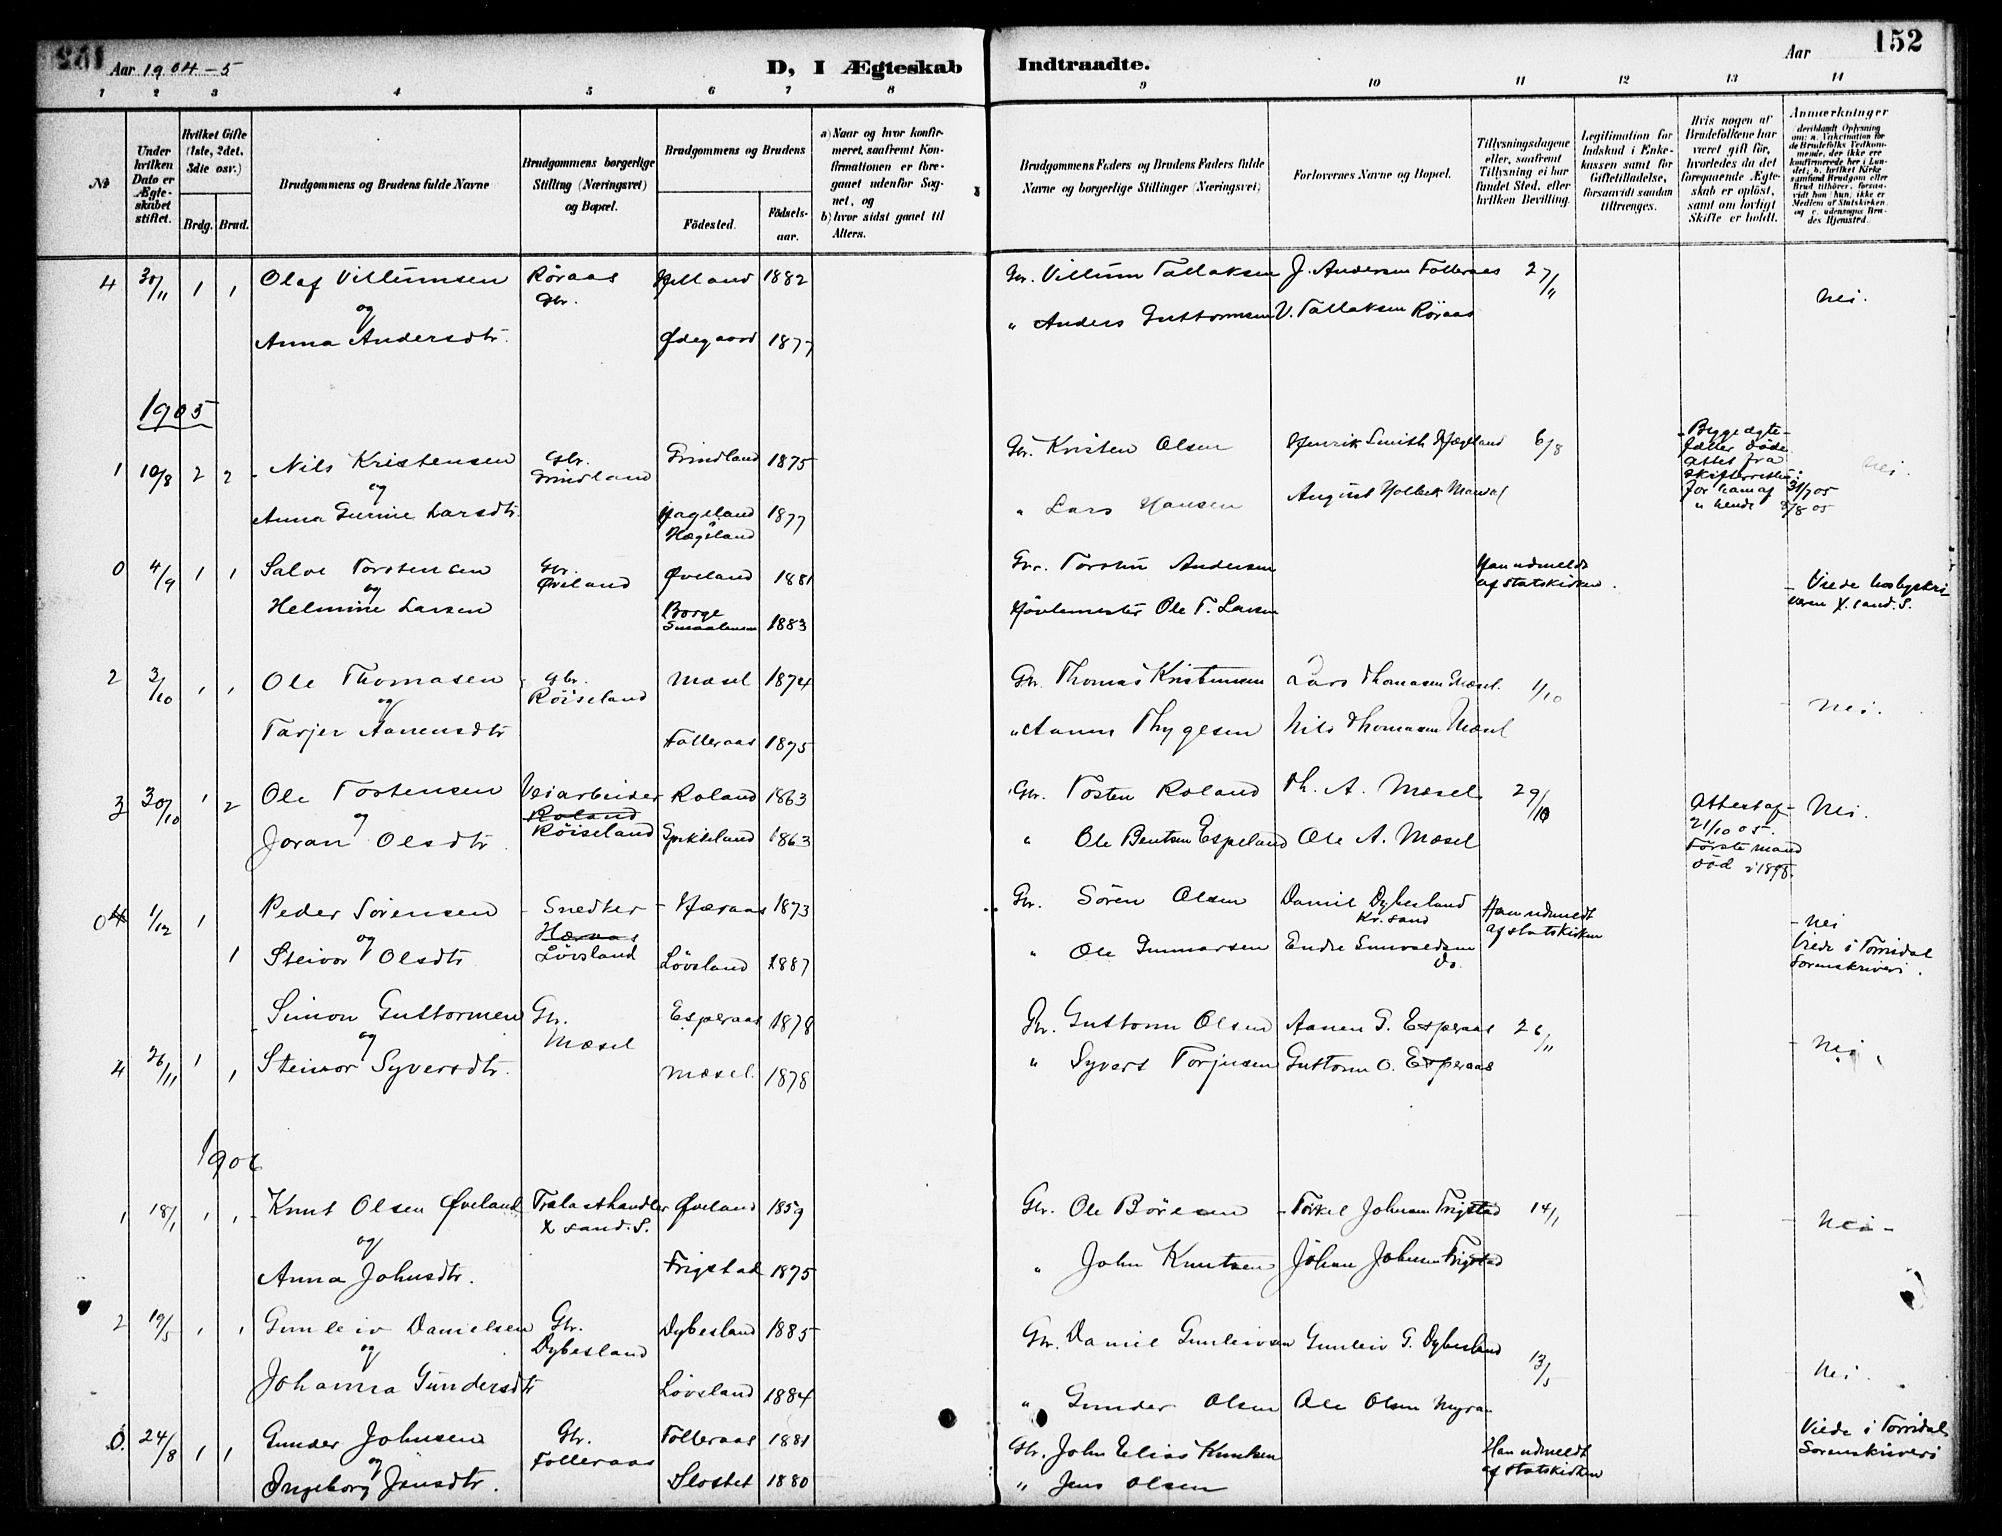 152
Aar 1904-5
D, I Ægteskab Indtraadte.
Aar
1 2 3 4 5 6 7 8 9 10 11 12 13 14
№
Under hvilken Dato er Ægteskabet stiftet.
Hvilket Gifte (1ste, 2det, 3die osv.)
Brdg. Brud.
Brudgommens og Brudens fulde Navne
Brudgommens borgerlige Stilling (Næringsvei) og Bopæl.
Brudgommens og Brudens
Födested.
Födselsaar.
a) Naar og hvor konfirmeret, saafremt Konfirmationen er foregaaet udenfor Sognet, og
b) hvor sidst gaaet til Alters.
Brudgommens Faders og Brudens Faders fulde Navne og borgerlige Stillinger (Næringsvei)
Forlovernes Navne og Bopæl.
Tillysningsdagene eller, saafremt Tillysning ei har fundet Sted, efter hvilken Bevilling.
Legitimation for Indskud i Enkekassen samt for Giftetilladelse, forsaavidt saadan tiltrænges.
Hvis nogen af Brudefolkene har været gift för, hvorledes da det foregaaende Ægteskab er oplöst, samt om lovligt Skifte er holdt.
Anmærkninger
4 30/11 1 1 Olaf Villumsen Röraas Gbr. 1882 Gbr. Villum Tallaksen J. Andersen Folleraas 27/11 Nei.
og
Anna Andersdtr. Ødegaard 1877 " Anders Guttormsen V. Tallaksen Röraas
1905
1 10/8 2 2 Nils Kristensen Gbr. Grindland Grindland 1875 Gbr. Kristen Olsen Henrik Smith Hægeland 6/8 Begge ægtefæller døde. Attest fra skifteretten for ham af 31/7 05 " hende 8/8 05 Nei.
og
Anna Gurine Larsdtr. Hageland Hægeland 1877 " Lars Hansen August Holbek Mandal
0 4/9 1 1 Salve Torstensen Gbr. Øveland Øveland 1881 Gbr. Torsten Andersen Han udmeldt af statskirken. Viede hos byskriveren X.sand.S.
og
Helmine Larsen Borge Smaalenene 1883 Ole T. Larsen
2 3/10 1 1 Ole Thomasen Gbr. Röiseland Mæsel 1874 Gbr. Thomas Kristensen Lars Thomasen Mæsel. 1/10 Nei.
og
Tarjer Aanensdtr Folleraas 1875 " Aanen Thygesen Nils Thomasen Mæsel
3 30/10 1 2 Ole Tostensen Veiarbeider Roland Röiseland Roland 1863 Gbr. Tosten Roland Th. A. Mæsel 29/10 Attest af 21/10 05. Förste mand död i 1898. Nei.
og
Joran Olsdtr. 1863 " Ole Bentsen Espeland Ole A. Mæsel
0 1/12 1 Peder Sörensen Snedker Hæraas Lövsland Hæraas 1873 Gbr. Sören Olsen Daniel Dybesland Kr.sand Han udmeldt af statskirken Nei Viede i Torridal Sorenskriveri.
og
1 Steivor Olsdtr Lövsland 1887 " Ole Gunnarsen Endre do.
Simon Guttormsen Gbr. Mæsel Esperaas 1878 Gbr. Guttorm Olsen Aanen G. Esperaas 26/11 Nei.
og
4 26/11 1 1 Steinvor Syversdtr. Mæsel. 1878 " Syvert Torjusen Guttorm O. Esperaas
1906
1 18/1 1 1 Knut Olsen Øveland Trælasthandler X sand. S. Øveland 1859 Gbr. Ole Böresen Torkel Johnsen Frigstad 14/1 Nei
og
Anna Johnsdtr. Frigstad 1875 " John Knutsen Johan Johnsen Frigstad
2 19/5 1 1 Gunleiv Danielsen Gbr. Dybesland Dybesland 1885 Gbr. Daniel Gunleivsen Gunleiv G. Dybesland 13/5 Nei.
og
Johanna Gundersdtr Lövsland 1884 " Gunder Olsen Ole Olsen Myran
0. 24/8 1 1 Gunder Johnsen Gbr. Folleraas Folleraas 1881 Gbr. John Elias Knutsen Han udmeldt af statskirken Viede i Torridal Sorenskriveri
og
Ingeborg Jensdtr. Slottet 1880 " Jens Olsen